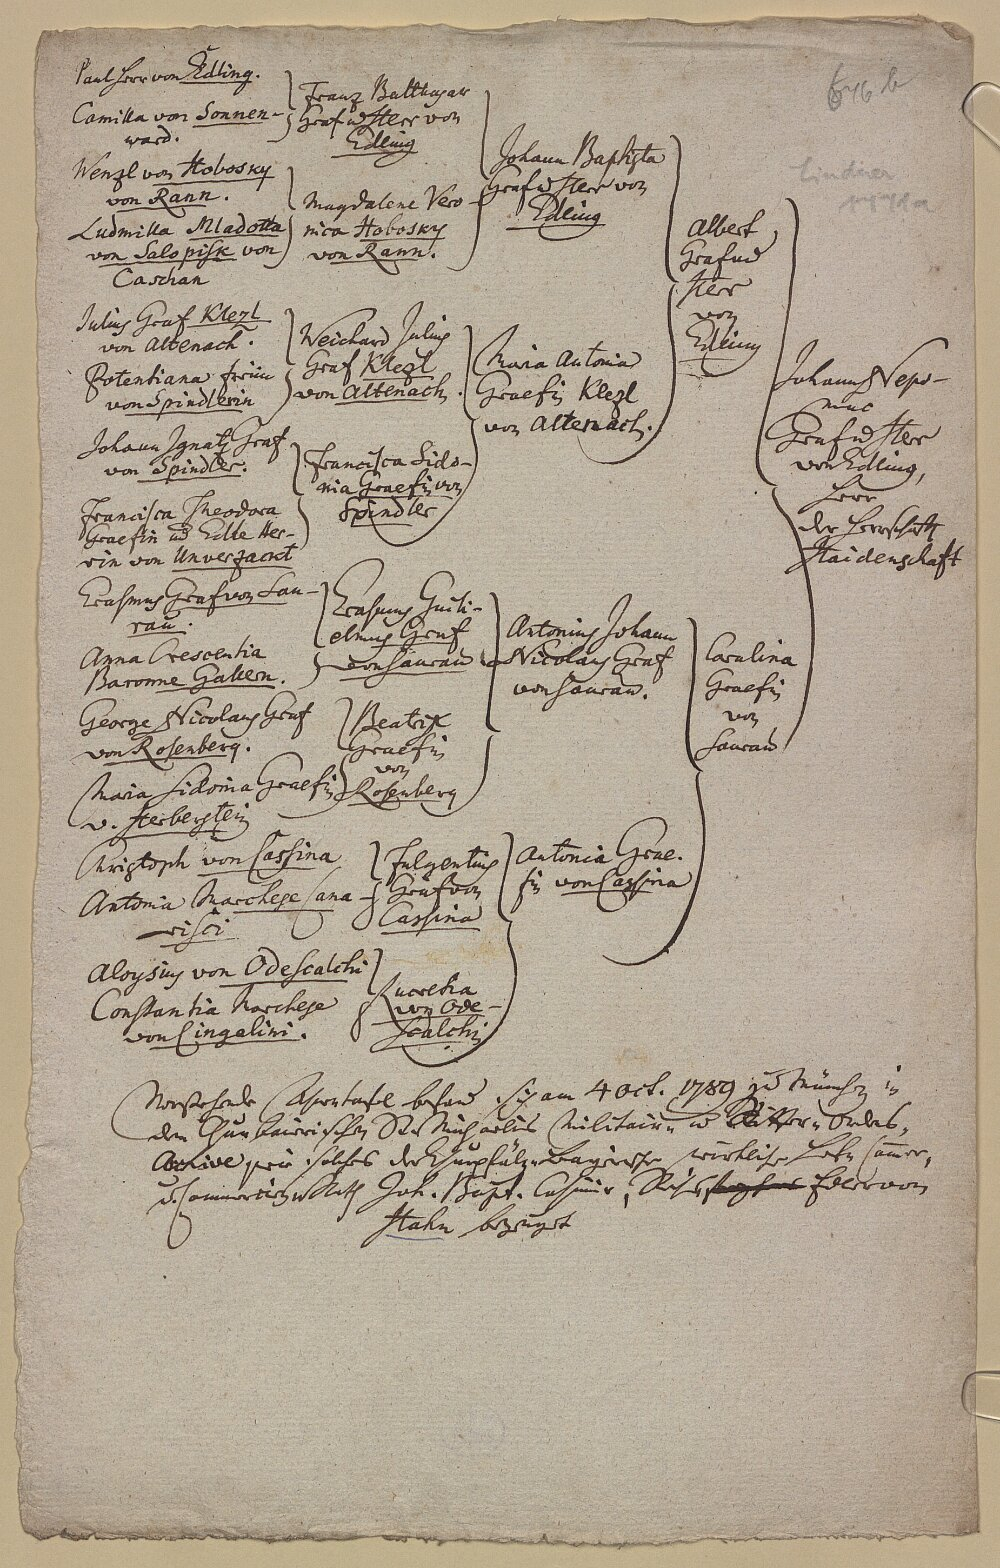 Paul Herr von Edling.
Camilla von Sonnen-
ward.
Wenzl von Hobosky
von Rann.
Ludmilla Mladotta
von Salopisk von
Caschan
Julius Graf Klezl
von Altenach.
Potentiana freiin
von Spindlerin
Johann Ignatz Graf
von Spindler.
Francisca Theodora
Graefin ud Edle Her-
rin von Unverzackt
Erasmus Graf von Sau-
rau.
Anna Crescentia
Baronne Gallern.
George Nicolaus Graf
von Rosenberg.
Maria Sidonia Graefin
v. Herberstein
Christoph von Cassina
Antonia Marchese Cana-
risci
Aloysius von Odescalchi
Constantia Marchese
von Cingelini.
Franz Balthasar
Graf ud Herr von
Edling
Magdalene Vero-
nica Hobosky
von Rann.
Weichard Julius
Graf Klezl
von Altenach.
Francisca Sido-
nia Graefin von
Spindler
Erasmus Guili-
elmus Graf
von Saurau
Beatrix
Graefin
von
Rosenberg
Fulgentius
Graf von
Cassina
Lucretia
von Ode-
scalchi
Johann Baptista
Graf ud Herr von
Edling
Maria Antonia
Graefin Klezl
von Altenach.
Antonius Johann
Nicolaus Graf
von Saurau.
Antonia Grae-
fin von Cassina
Albert
Graf ud
Herr
von
Edling
Carolina
Graefin
von
Saurau
Johann Nepo-
muc
Graf ud Herr
von Edling,
Herr
der Herrschaft
Haidenschaft
646 b
Lindner
Vorstehende Ahnentafel befand sich am 4 Oct. 1789 zu München in
dem Churbaierischen St. Michaelis Militair- ud Ritter-Ordens-
Archive, wie solches der Churpfälz-bayerische wirkliche Hofkammer-
u. Commercien-Rath Joh. Bapt. Casimir, Edler von
Hahn bezeuget